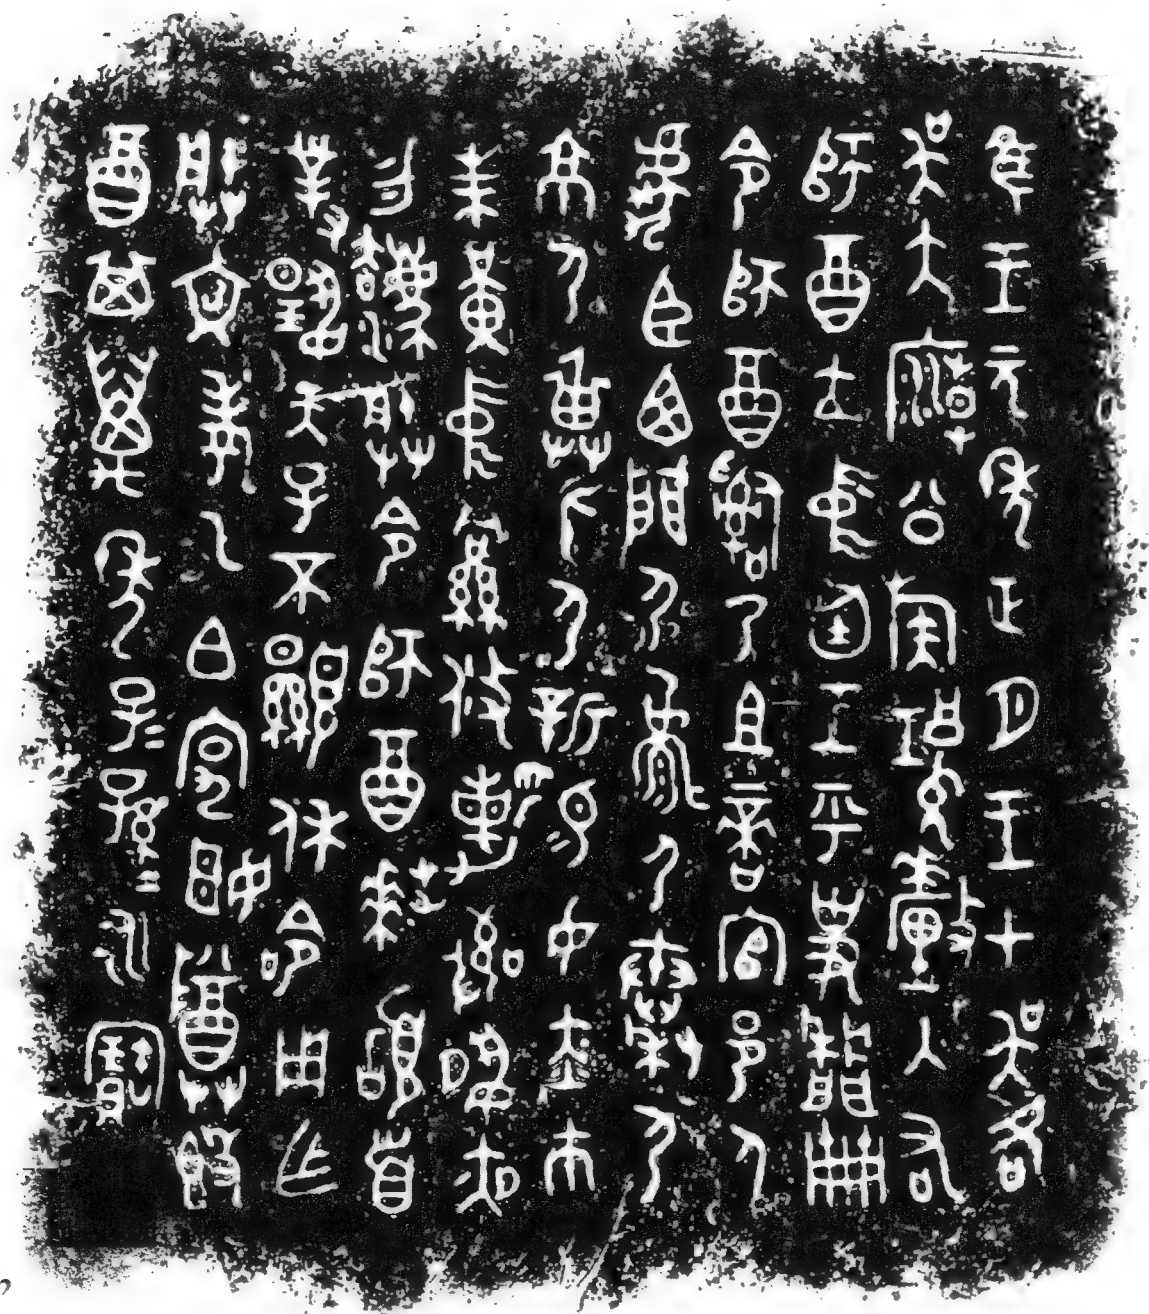 隹王元年正月王才吳各
吳大廟公族𤞷釐入右
師酉立中廷王乎史冊
令師酉𤔲乃且啻官邑人
虎臣西門尸尸秦尸
京尸畁身尸新易女赤巿
朱黃中冂攸勒敬夙夜
勿灋朕令師酉拜𩒨首
對揚天子不顯休令用乍
朕文考乙白宄姬尊𣪘
酉其萬年子=孫=永寶